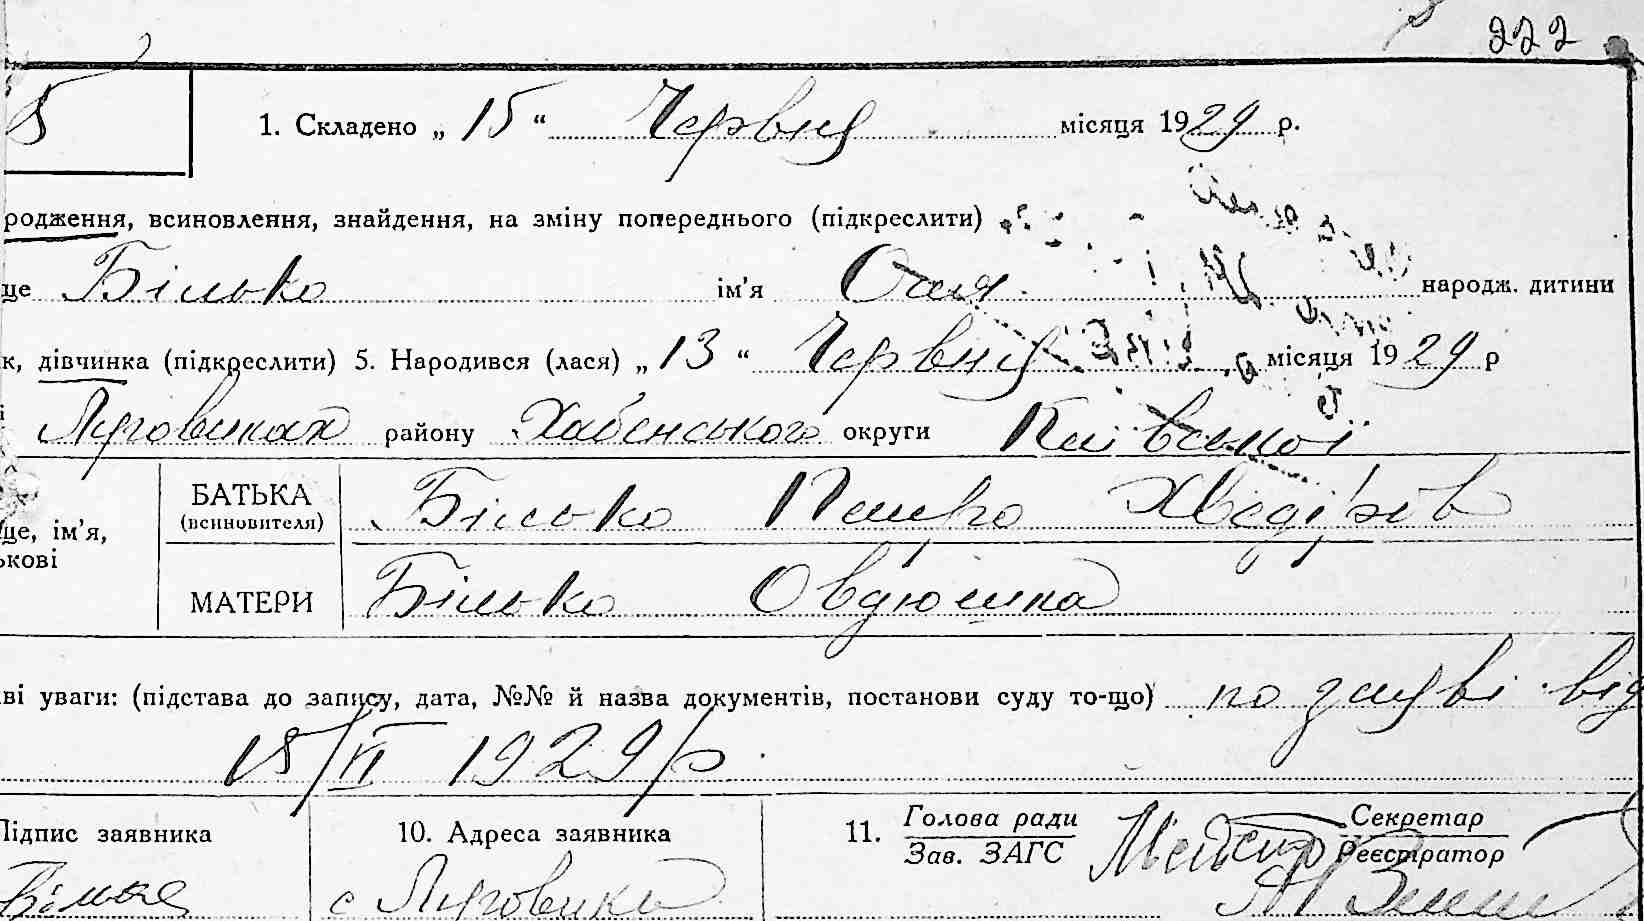 222
5
1. Складено „ 15 “ Червня місяця 1929 р.
родження, всиновлення, знайдення, на зміну попереднього (підкреслити)
це Білько ім'я Оля народж. дитини
к, дівчинка (підкреслити) 5. Народився (лася) „ 13 “ Червня місяця 1929 р
і Луговиках району Хабенського округи Київської
БАТЬКА
(всиновителя)
Білько Петро Хведорів
ще, ім'я,
ькові
МАТЕРИ
Білько Овдюшка
ві уваги: (підстава до запису, дата, №№ й назва документів, постанови суду то-що) по заяві від
15/VI 1929 р
Підпис заявника
10. Адреса заявника
11. Голова ради
Зав. ЗАГС
Секретар
Реєстратор
Білько
с Луговики